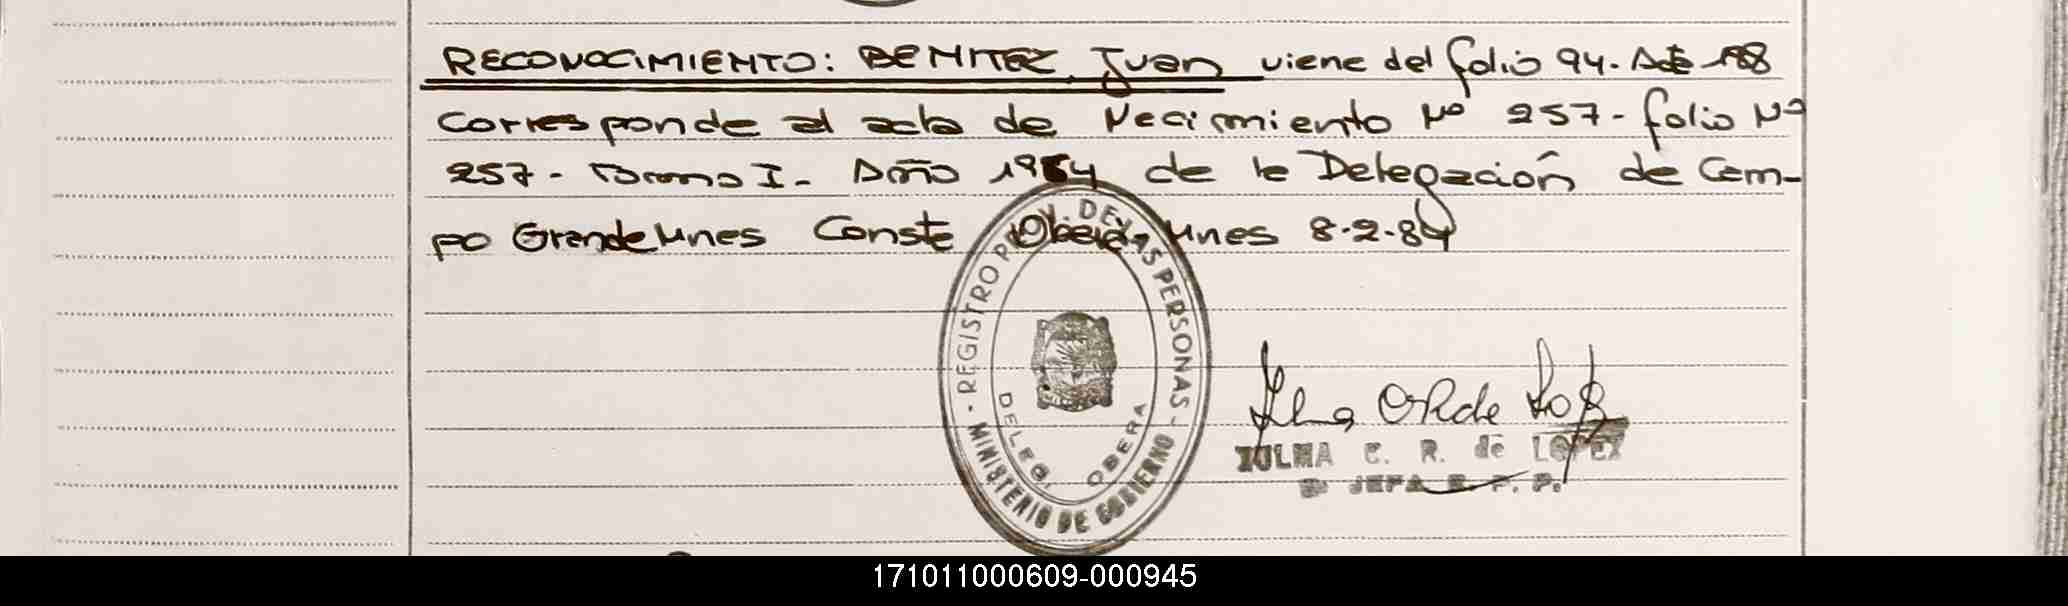 RECONOCIMIENTO: BENITEZ, Juan viene del folio 94. Acta 188
Corresponde al acta de Nacimiento Nº 257 - folio Nº
257 - Tomo I - Año 1954 de la Delegación de Cam-
po Grande Mnes Conste Oberá, Mnes 8-2-84
- REGISTRO DE LAS PERSONAS -
MINISTERIO DE GOBIERNO
DELEG. OBERA
ZULMA E. R. de LOPEZ
JEFA R. P. P.
171011000609-000945